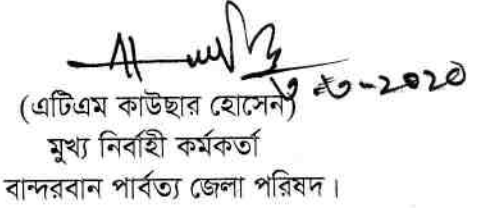 (এটিএম কাউছার হোসেন)
মুখ্য নির্বাহী কর্মকর্তা
বান্দরবান পার্বত্য জেলা পরিষদ।